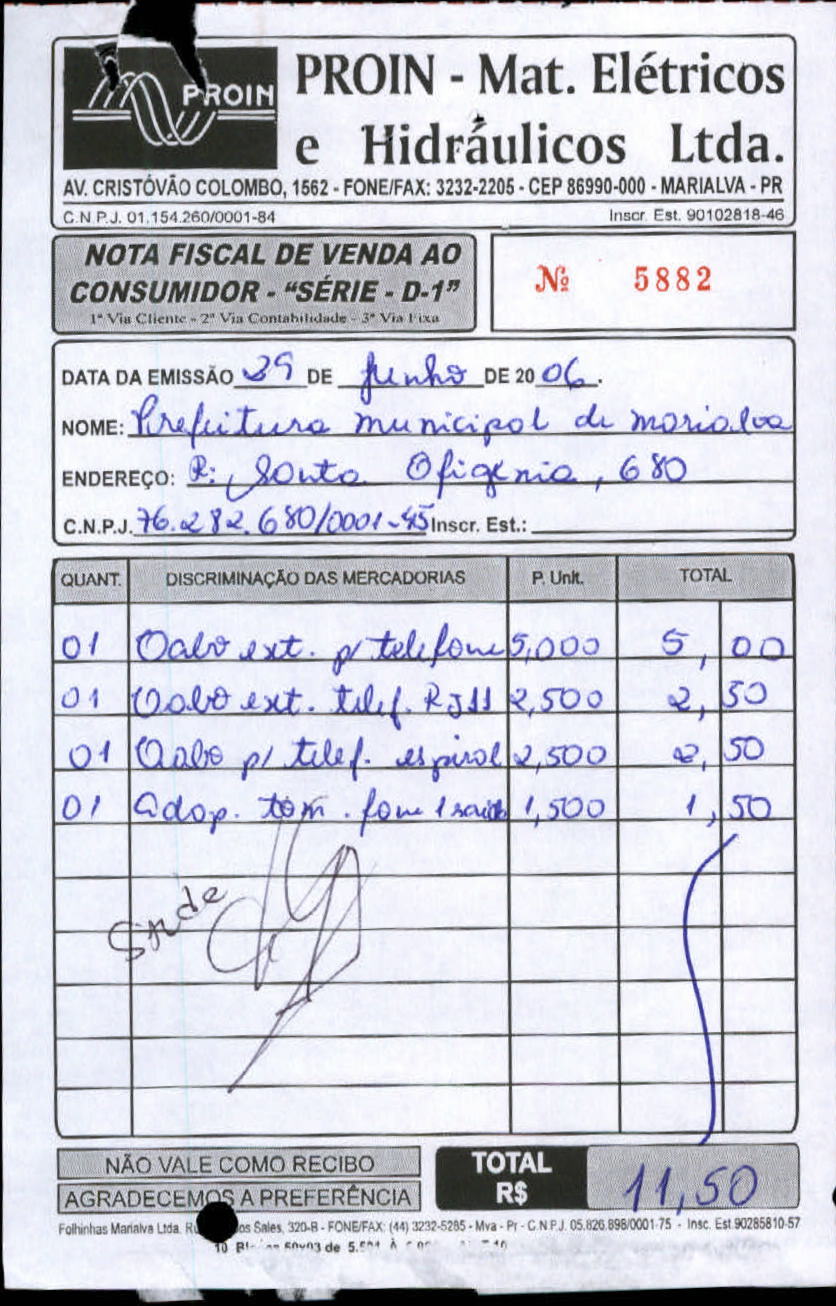 PROIN
PROIN - Mat. Elétricos
e Hidráulicos Ltda.
AV. CRISTÓVÃO COLOMBO, 1562 - FONE/FAX: 3232-2205 - CEP 86990-000 - MARIALVA - PR
C.N.P.J. 01.154.260/0001-84 Inscr. Est. 90102818-46
NOTA FISCAL DE VENDA AO
CONSUMIDOR - “SÉRIE - D-1”
1ª Via Cliente - 2ª Via Contabilidade - 3ª Via Fixa
Nº 5882
DATA DA EMISSÃO 29 DE Junho DE 20 06.
NOME: Prefeitura municipal de marialva
ENDEREÇO: R: Santa Efigenia, 680
C.N.P.J. 76.282.680/0001-45 Inscr. Est.:
QUANT. DISCRIMINAÇÃO DAS MERCADORIAS P. Unit. TOTAL
01 Cabo ext. p/ telefone 5,000 5,00
01 Cabo ext. telef. RJ11 2,500 2,50
01 Cabo p/ telef. espiral 2,500 2,50
01 adap. tom. fone 1 saida 1,500 1,50
NÃO VALE COMO RECIBO
AGRADECEMOS A PREFERÊNCIA
TOTAL
R$ 11,50
Folhinhas Marialva Ltda. os Sales, 320-B - FONE/FAX: (44) 3232-5285 - Mva - Pr - C.N.P.J. 05.826.898/0001-75 - Insc. Est.90285810-57